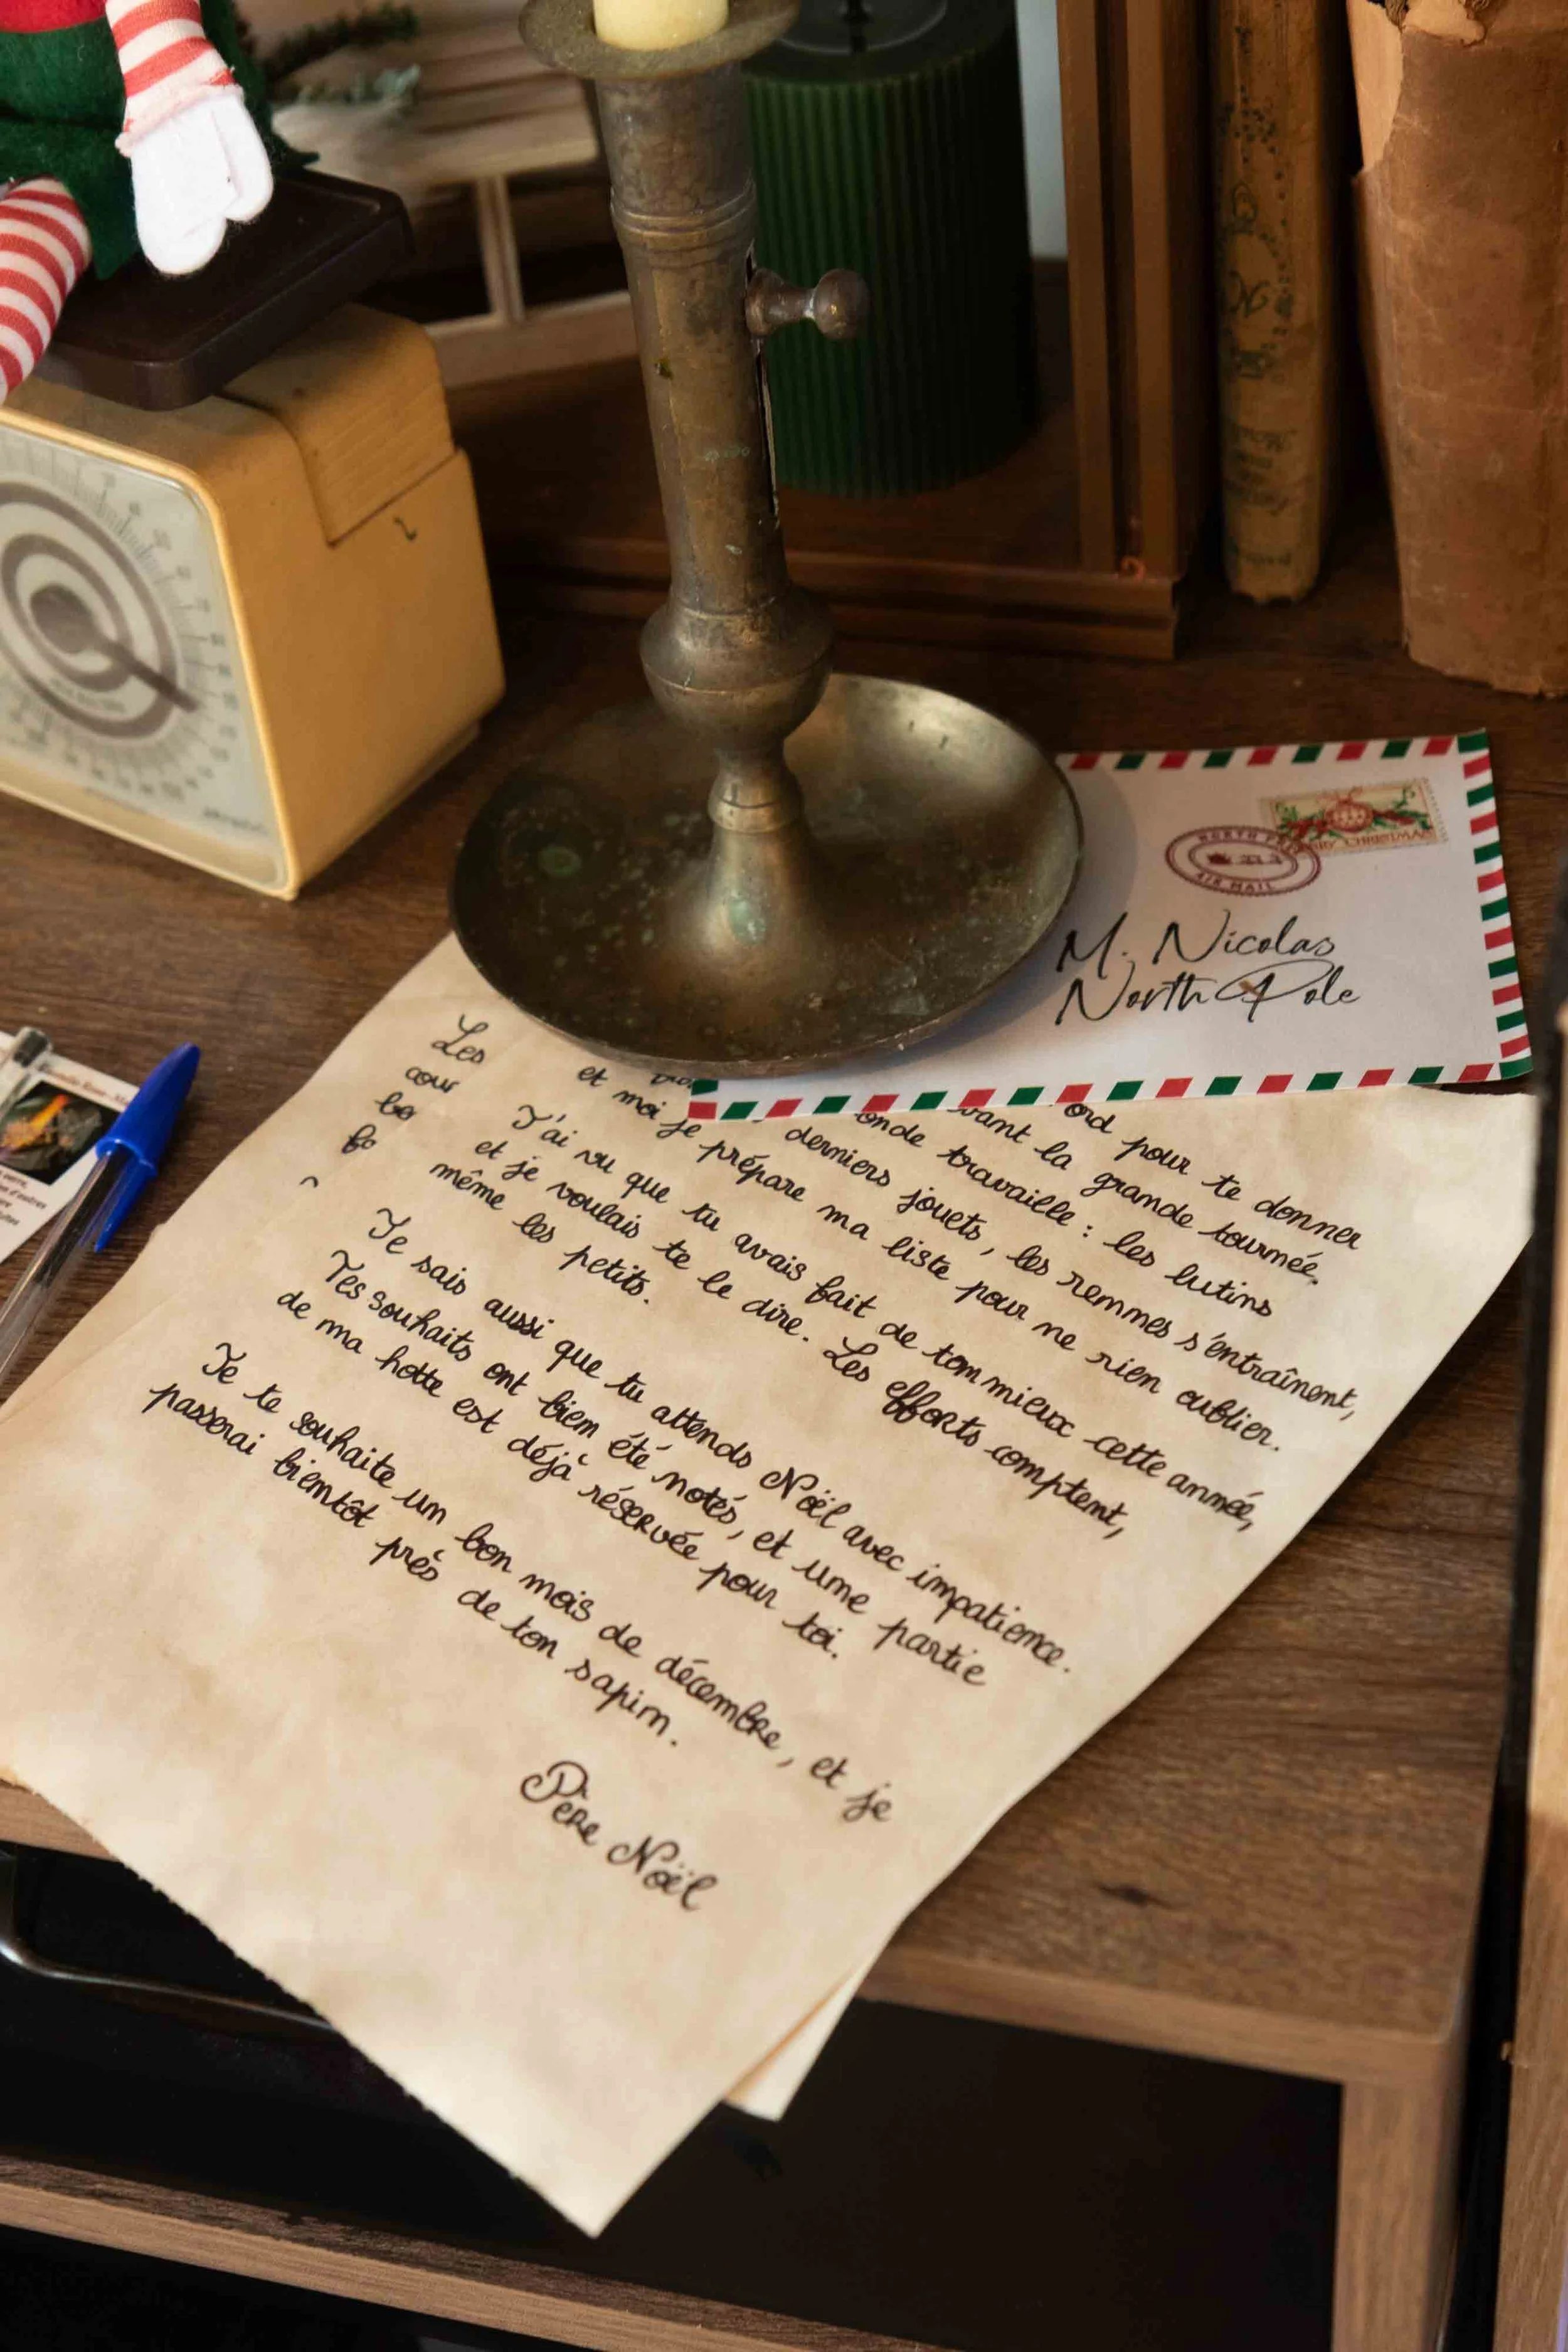 NORTH
AIR MAIL
CHRISTMAS
M. Nicolas
North Pole
ord pour te donner
vant la grande tournée.
onde travaille : les lutins
derniers jouets, les rennes s'entraînent,
et moi je prépare ma liste pour ne rien oublier.
J'ai vu que tu avais fait de ton mieux cette année,
et je voulais te le dire. Les efforts comptent,
même les petits.
Je sais aussi que tu attends Noël avec impatience.
Tes souhaits ont bien été notés, et une partie
de ma hotte est déjà réservée pour toi.
Je te souhaite un bon mois de décembre, et je
passerai bientôt près de ton sapin.
Père Noël
Les
cour